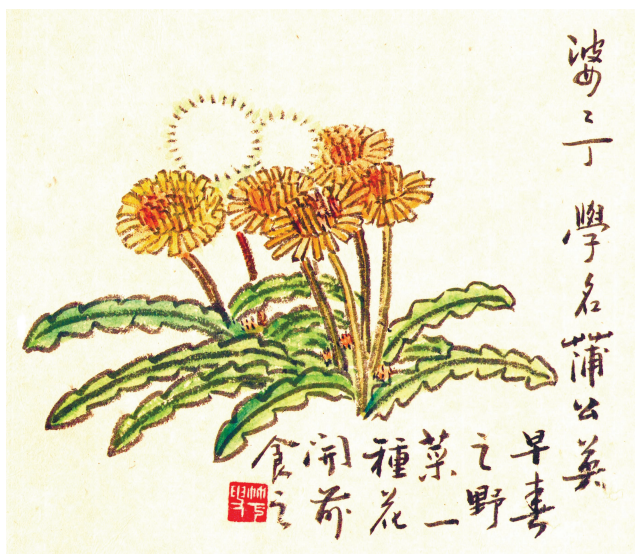 婆〻丁 學名蒲公英
早春
之野
菜一
種花
開前
食之